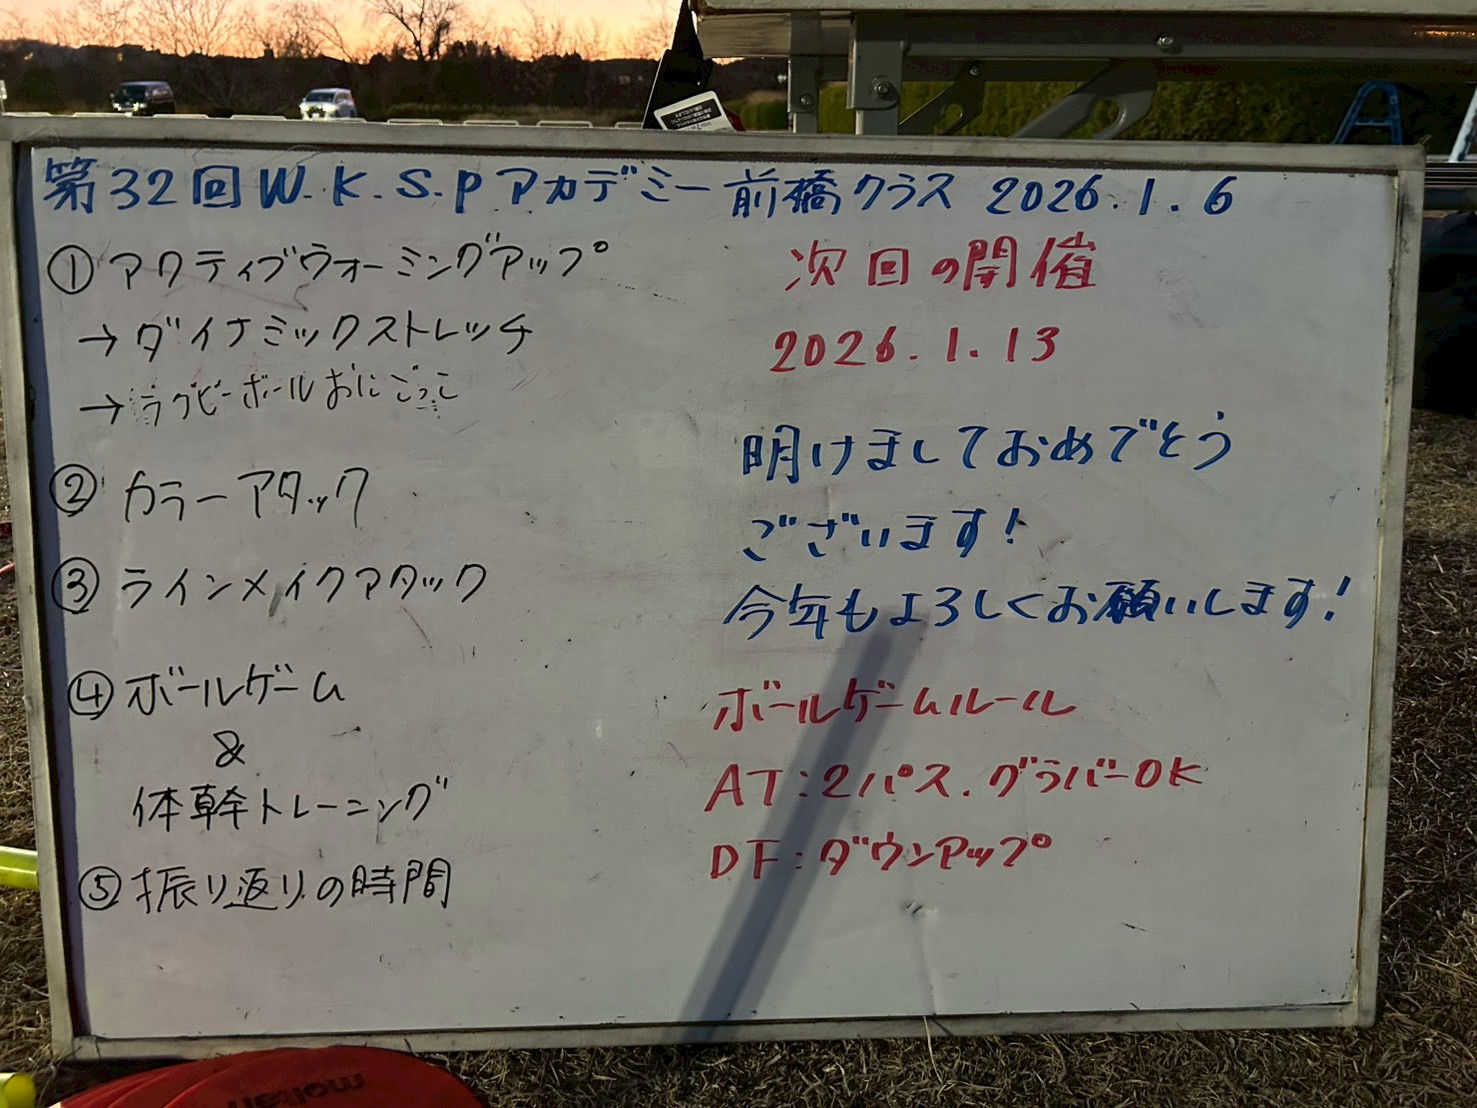 第32回 W.K.S.P アカデミー 前橋クラス 2026.1.6
① アクティブウォーミングアップ
→ ダイナミックストレッチ
→ ラグビーボールおにごっこ
② カラーアタック
③ ラインメイクアタック
④ ボールゲーム
&
体幹トレーニング
⑤ 振り返りの時間
次回の開催
2026.1.13
明けましておめでとう
ございます!
今年もよろしくお願いします!
ボールゲームルール
AT:2パス.グラバーOK
DF:ダウンアップ
molten